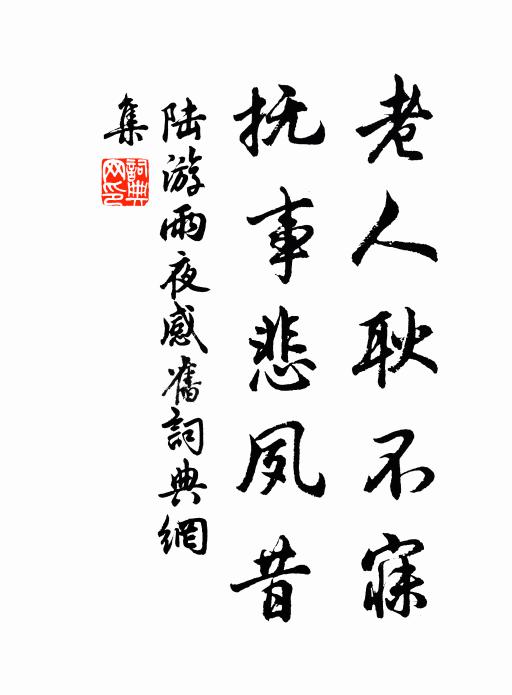 老人耿不寐
抚事悲夙昔
陆游雨夜感舊詞典網
集
詞典
网印